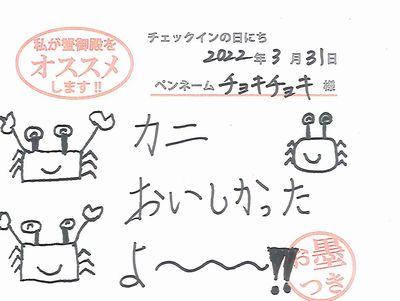 私が蟹御殿を
オススメ
します!!
チェックインの日にち
2022年3月31日
ペンネーム チョキチョキ 様
カニ
おいしかった
よ〜〜〜!!
お墨
つき